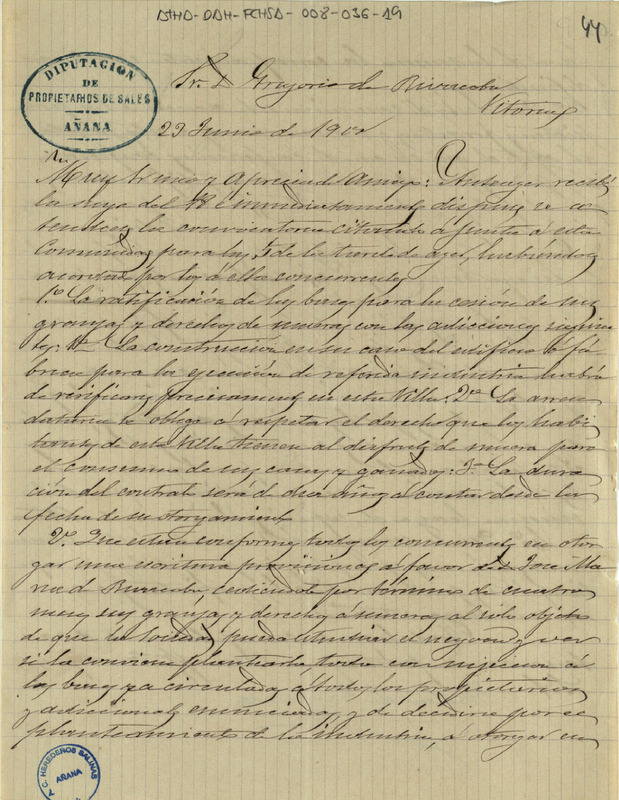 ATHA-DAH-FCHSA-008-036-19
44
DIPUTACION
DE
PROPIETARIOS DE SALES
AÑANA
Sr. D Gregorio de Burrcoba
Vitoria
23 Junio de 1900
Muy Sr mio y apreciado amigo: Anteayer recibí
la suya del 18 é inmediatamente dispuse se ex
tendiese la convocatoria citando a junta á esta
Comunidad para las 5 de la tarde de ayer, habiéndose
acordado por los á ella concurrentes
1.º La ratificación de las bases para la cesión de sus
granjas y derechos de mueras con las adiciones siguien
tes: 1ª La construcción en su caso del edificio ó fá
brica para la ejecución de referida industria habrá
de verificarse precisamente en esta Villa: 2ª La arren
dataria se obliga á respetar el derecho que los habi
tantes de esta Villa tienen al disfrute de muera para
el consumo de sus casas y ganados: 3ª La dura
ción del contrato será de diez años a contar desde la
fecha de su otorgamiento
2º Que estan conformes todos los concurrentes en otor
gar una escritura provisional á favor de D Jose Ma
ria de Burrcoba, cediéndole por término de cuatro
meses sus granjas y derechos á mueras al solo objeto
de que la Sociedad pueda estudiar el negocio y ver
si la conviene plantearlo, todo con sujecion á
las bases ya circuladas á todos los propietarios
y adicionales enunciadas, y de decidirse por el
planteamiento de la industria, á otorgar en
A.C. HEREDEROS SALINAS
AÑANA